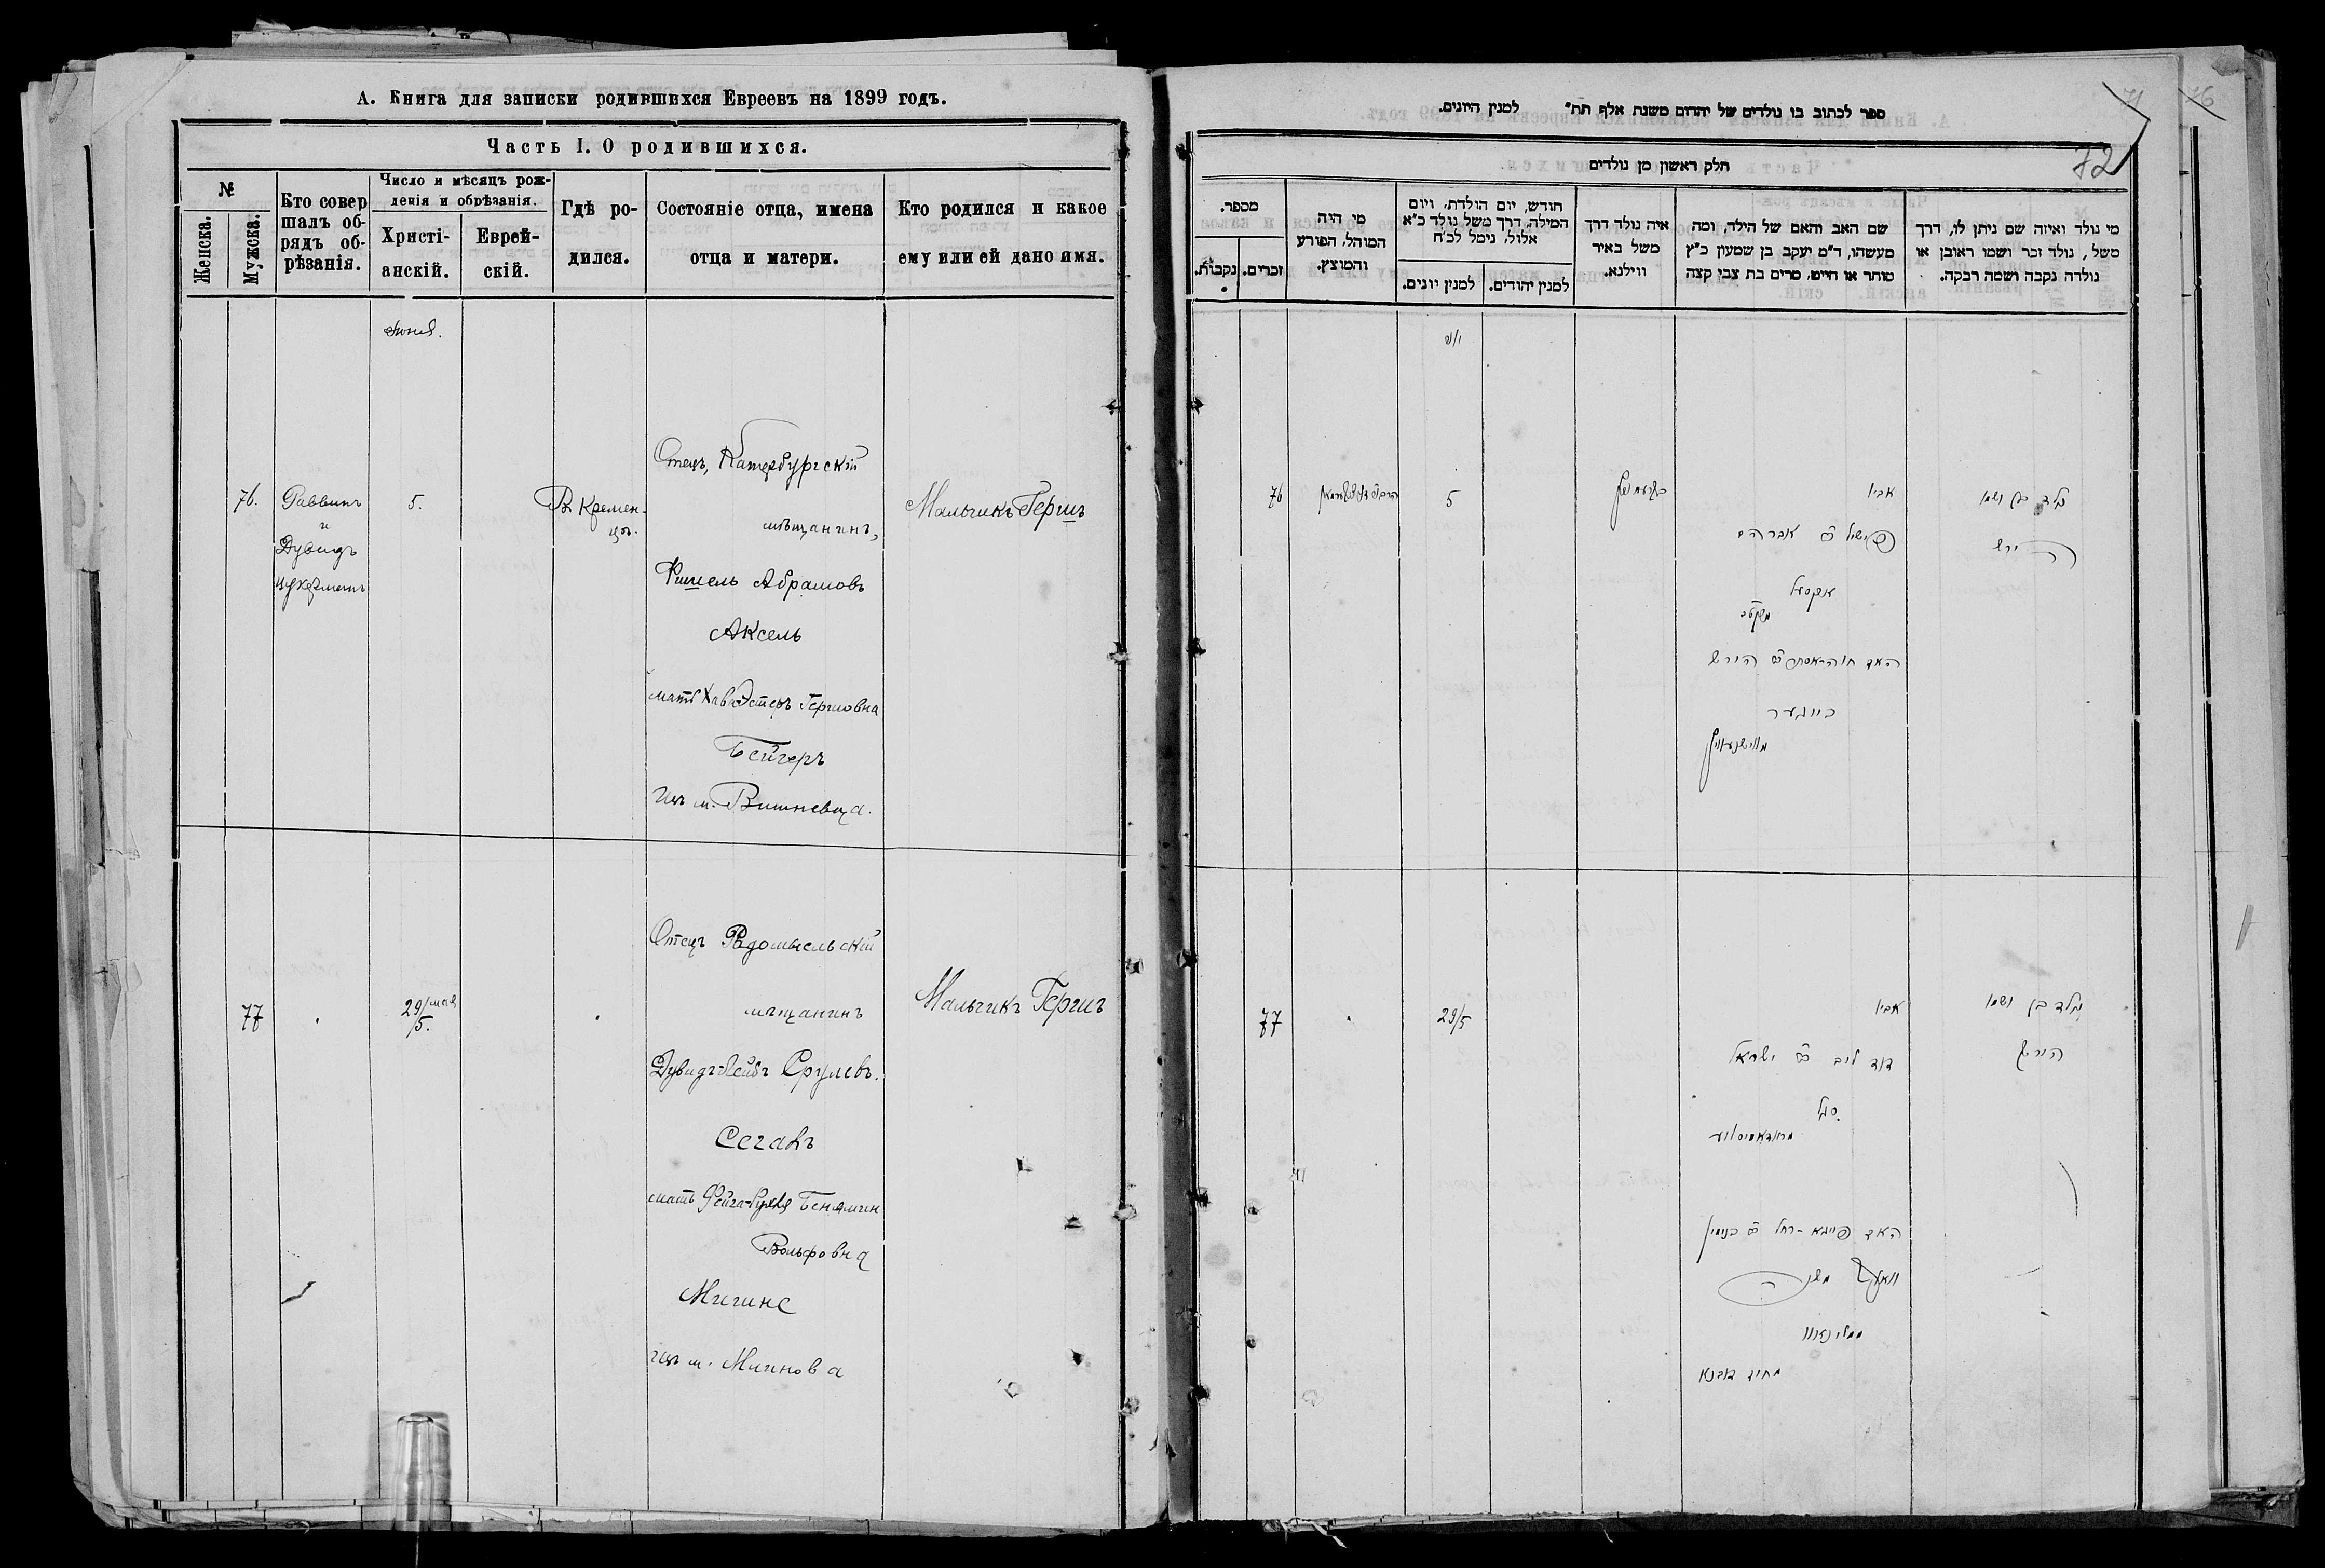 А. Книга для записки родившихся Евреевъ на 1899 годъ.
Часть I. О родившихся.
№
Женска.
Мужска.
Кто совер
шалъ об-
рядъ об-
рѣзанія.
Число и мѣсяцъ рож-
денія и обрѣзанія.
Христі-
анскій.
Еврей-
скій.
Гдѣ ро-
дился.
Состояніе отца, имена
отца и матери.
Кто родился и какое
ему или ей дано имя.
Іюня.
76.
Раввинъ
и
Дувидъ
Цукерманъ
5.
В Кремен-
цѣ.
Отецъ, Катербургскій
мѣщанинъ,
Фишель Абрамовъ
Аксель
мать Хава-Эстеръ Гершовна
Бейгеръ
изъ м. Вишневца.
Мальчикъ Гершъ
77
29/мая
/5.
Отецъ Радомысльскій
мѣщанинъ
Дувидъ-Лейбъ Срулевъ.
Сегалъ
мать Фейга-Рухля Бенямин
Вольфовна
изъ м.
Мальчикъ Гершъ
ספר לכתוב בו נולדים של יהדום משנת אלף תת״ למנין היונים.
72
חלק ראשון מן נולדים
מספר.
נקבות.
זכרים.
מי היה
המוהל, הפורע
והמוצץ.
חודש, יום הולדת, ויום
המילה, דרך משל נולד כ״א
אלול, נימל לכ״ח
למנין יונים.
למנין יהודים.
איה נולד דרך
משל באיר
ווילנא.
שם האב והאם של הילד, ומה
מעשהו, ד״מ יעקב בן שמעון כ״ץ
סוחר או חייט, מרים בת צבי קצה
מי נולד ואיזה שם ניתן לו, דרך
משל, נולד זכר ושמו ראובן או
נולדה נקבה ושמה רבקה.
יוני
76
5
אביו
פישיל ב״ר אברהם
אקסעל
האם חיה-אסתר ב״ר הירש
בייגער
נולד בן ושמו
הירש
77
29/5
אביו
דוד ליב ב״ר ישראל
סגל
האם פייגא-רחל ב״ר בנימין
וואלף
נולד בן ושמו
הירש